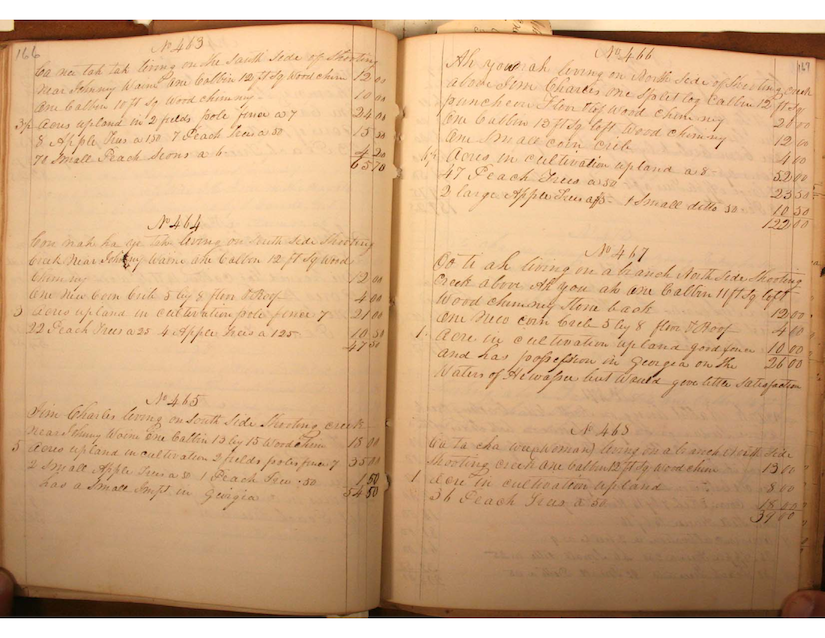 166
No 463
Ca ne tah tah living on the South Side of Shooting
near Johnny Warm one Cabbin 12 ft Sq Wood chim 12 00
One Cabbin 10 ft Sq Wood chimney 10 00
3½ Acres upland in 2 fields pole fence a 7 24 00
8 Apple Trees a 150 7 Peach Trees a 50 15 50
70 Small Peach Scions a 6 4 20
65 70
No 464
living on South Side Shooting
Creek near Johnny Warm one Cabbin 12 ft Sq Wood
Chimney 12 00
One New Corn Crib 5 by 8 floor & Roof 4 00
3 Acres upland in cultivation pole fence 7 21 00
22 Peach Trees a 25 4 Apple Trees a 125 10 50
47 50
No 465
Jim Charles living on South Side Shooting creek
near Johnny Warm one Cabbin 13 by 15 Wood chim 18 00
5 Acres upland in cultivation 2 fields poles fence 7 35 00
2 Small Apple Trees a 50 1 Peach Tree 50 1 50
has a Small Impt in Georgia 54 50
167
No 466
Ah you ah living on North Side of Shooting creek
above Jim Charles one Split log Cabbin 12 ft Sq
puncheon floor loft Wood chimney 20 00
One Cabbin 13 ft Sq loft Wood chimney 12 00
One Small corn crib 4 00
Acres in cultivation upland a 8 52 00
47 Peach Trees a 50 23 50
2 large Apple Trees a 5 1 Small ditto 50 10 50
122 00
No 467
Oo te ah living on a branch North Side Shooting
Creek above Ah you ah one Cabbin 11 ft Sq loft
Wood chimney Stone back 12 00
One New corn Crib 5 by 8 floor & Roof 4 00
1 Acre in cultivation upland good fence 10 00
and has possession in Georgia on the 26 00
Waters of Hiwassee but Would give little Satisfaction
No 468
Wa ta cha (Woman) living on a branch North Side
Shooting creek one Cabbin 12 ft Sq Wood chim 13 00
1 Acre in cultivation upland 8 00
36 Peach Trees a 50 18 00
39 00